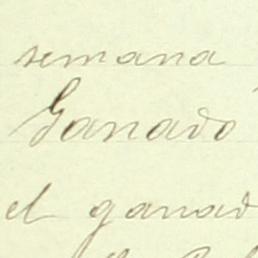 semana
Ganado
el ganad